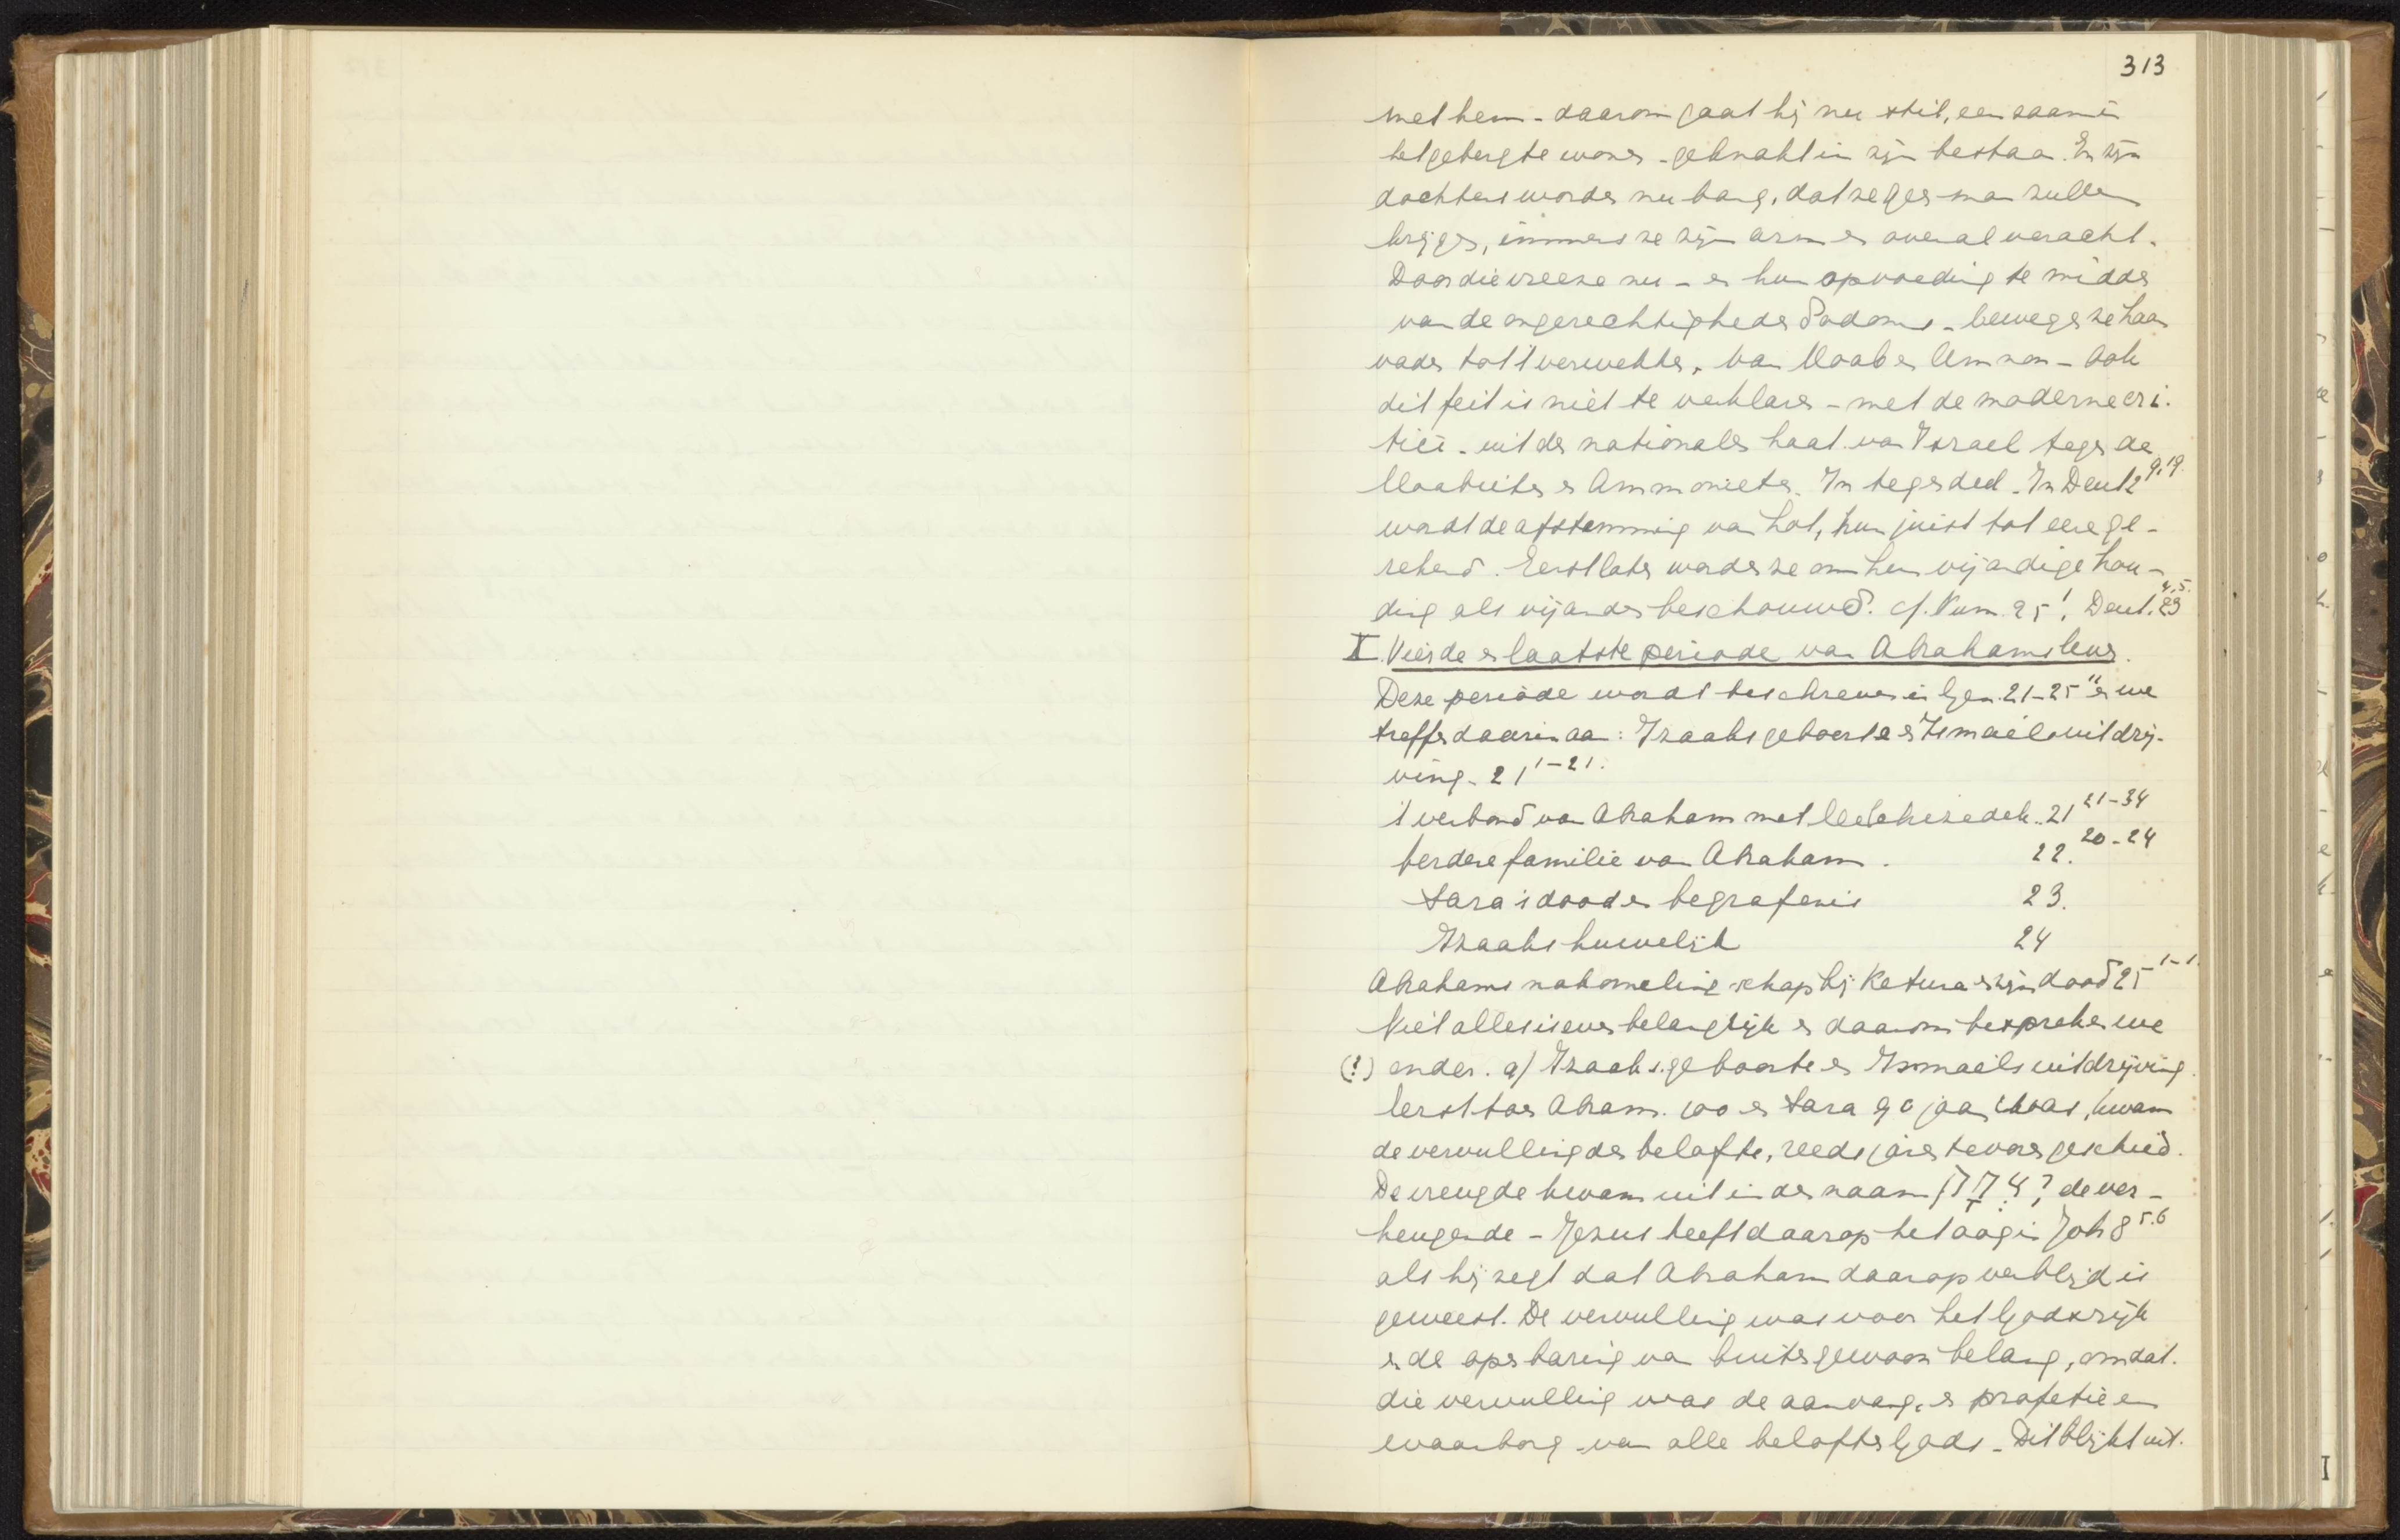 313
met hem - daarom gaat hij nu stil, eenzaam in
het gebergte wonen - geknakt in zijn bestaan. En zijn
dochters worden nu bang, dat ze geen man zullen
krijgen, immers ze zijn arm en overal veracht.
Door die vreeze nu - en hun opvoeding te midden
van de ongerechtigheden Sodoms - bewegen ze haar
vader tot 't verwekken, van Moab en Ammon - Ook
dit feit is niet te verklaren - met de moderne cri-
tici - uit den nationalen haat van Israel tegen de
Moabieten en Ammonieten. Integendeel - In Deut 2 9,19.
wordt de afstamming van Lot, hun juist tot eere ge-
rekend. Eerst later worden ze om hun vijandige hou-
ding als vijanden beschouwd. cf. Num. 25 1, Deut. 23 4,5.
X. Vierde en laatste periode van Abrahams leven.
Deze periode wordt beschreven in Gen. 21-25 11 en we
treffen daarin aan: Izaaks geboorte en Ismaëls uitdrij-
ving - 21 1-21.
't verbond van Abraham met Melchizedek. 21 21-34
verdere familie van Abraham. 22. 20-24
Sara's dood en begrafenis 23.
Izaaks huwelijk 24
Abrahams nakomelingschap bij Ketura en zijn dood 25 1-1.
Niet alles is even belangrijk en daarom bespreken we
(!) onder. a) Izaaks geboorte en Ismaëls uitdrijving.
Eerst toen Abram. 100 en Sara 90 jaar was, kwam
de vervulling der belofte, reeds jaren tevoren geschied.
De vreugde kwam uit in den naam יִצְחָק de ver-
heugende - Jezus heeft daarop het oog in Joh 8 5.6
als hij zegt dat Abraham daarop verblijd is
geweest. De vervulling was voor het Godsrijk
en de openbaring van buitengewoon belang, omdat.
die vervulling was de aanvang, en profetie en
waarborg van alle beloften Gods - Dit blijkt uit.